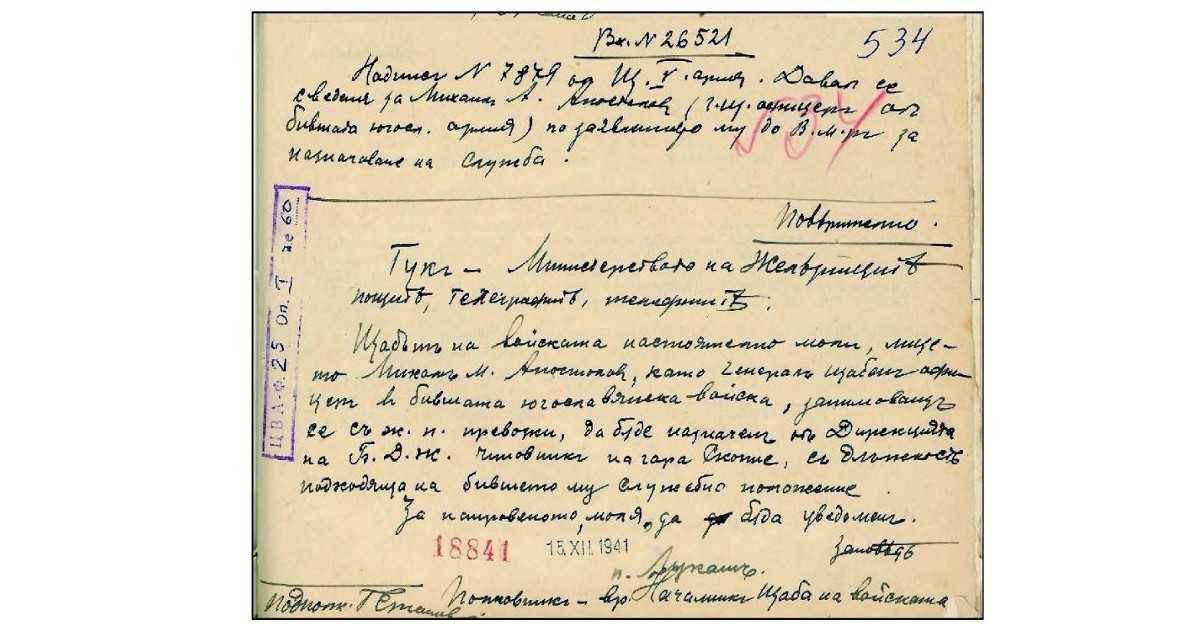 Вх. N 26521
534
Надпись N 7879 от Щ. V. армия. Дават се
сведения за Михаил А. Апостолов (г.щ. офицерь от
бившата югосл. армия) по заявлението му до В.М. за
назначаване на служба.
534
Поверително.
Тукъ – Министерството на Железницитѣ
пощитѣ, телеграфитѣ, телефонитѣ.
Щабътъ на войската настоятелно моли, лице-
то Михаилъ М. Апостолов, като Генералъ щабенъ офи-
церъ в бившата югославянска войска, занимаващъ
се съ ж. п. превозки, да бѫде назначенъ отъ Дирекцията
на Б.Д.Ж. чиновникъ на гара Скопие, съ длъжность
подходяща на бившето му служебно положение.
За направеното, моля, да бѫда уведоменъ.
18841 15.XII.1941
п. Лукашъ.
Полковникъ – вр. Началникъ Щаба на войската
Подполк.
ЦВА-Ф. 25 Оп. I ае 60